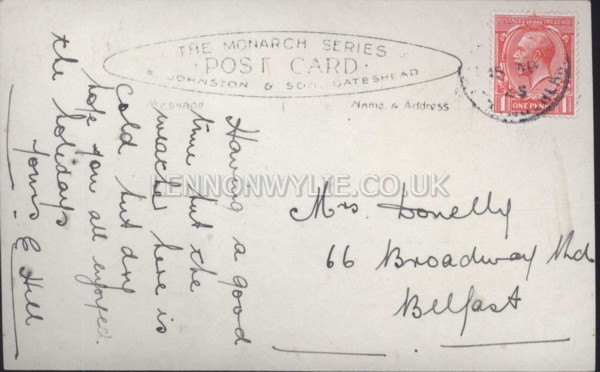 THE MONARCH SERIES
· POST CARD ·
JOHNSTON & SON, GATESHEAD
Message
Name & Address
POSTAGE REVENUE
ONE PENNY
1 1
LENNONWYLIE.CO.UK
Having a good
time but the
weather here is
cold but dry
hope you all enjoyed
the holidays
Yours E Hill
Mrs. Donelly
66 Broadway Rd
Belfast